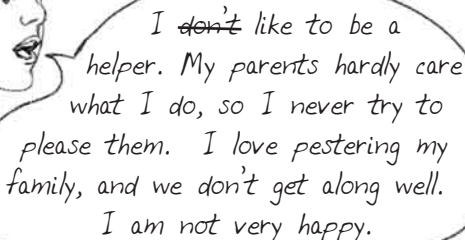 I don't like to be a
helper. My parents hardly care
what I do, so I never try to
please them. I love pestering my
family, and we don't get along well.
I am not very happy.